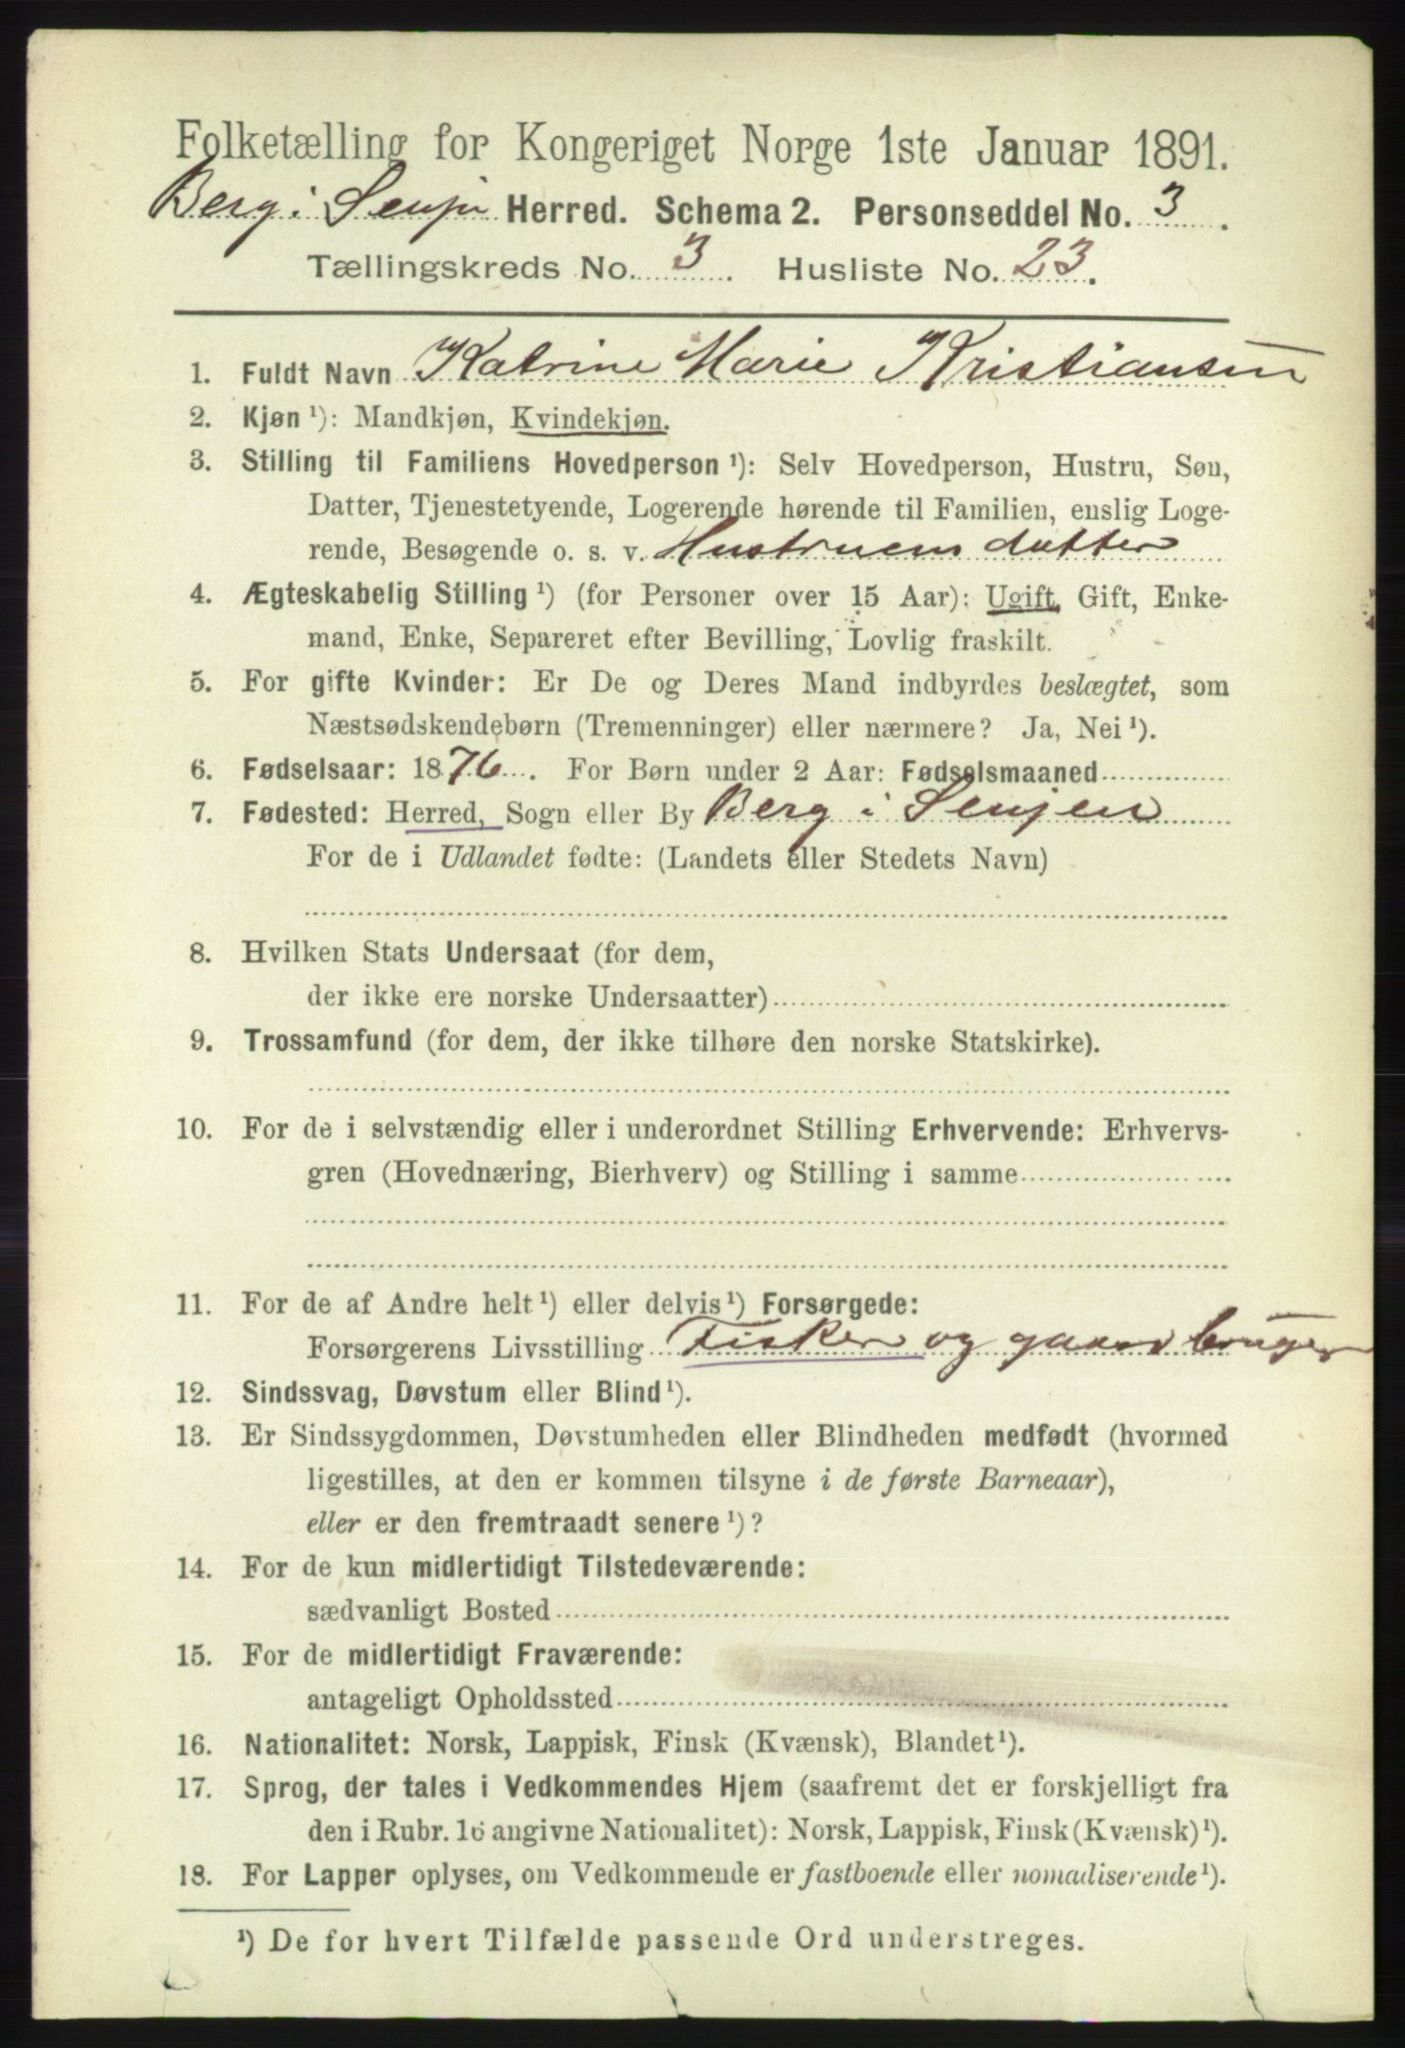 Folketælling for Kongeriget Norge 1ste Januar 1891.
Berg i Senjen Herred. Schema 2. Personseddel No. 3.
Tællingskreds No. 3. Husliste No. 23.
1. Fuldt Navn Katrine Marie Kristiansen
2. Kjøn ¹): Mandkjøn, Kvindekjøn.
3. Stilling til Familiens Hovedperson ¹): Selv Hovedperson, Hustru, Søn,
Datter, Tjenestetyende, Logerende hørende til Familien, enslig Loge-
rende, Besøgende o. s. v. Hustruens datter
4. Ægteskabelig Stilling ¹) (for Personer over 15 Aar): Ugift, Gift, Enke-
mand, Enke, Separeret efter Bevilling, Lovlig fraskilt.
5. For gifte Kvinder: Er De og Deres Mand indbyrdes beslægtet, som
Næstsødskendebørn (Tremenninger) eller nærmere? Ja, Nei ¹).
6. Fødselsaar: 1876. For Børn under 2 Aar: Fødselsmaaned
7. Fødested: Herred, Sogn eller By Berg i Senjen
For de i Udlandet fødte: (Landets eller Stedets Navn)
8. Hvilken Stats Undersaat (for dem,
der ikke ere norske Undersaatter)
9. Trossamfund (for dem, der ikke tilhøre den norske Statskirke).
10. For de i selvstændig eller i underordnet Stilling Erhvervende: Erhvervs-
gren (Hovednæring, Bierhverv) og Stilling i samme
11. For de af Andre helt ¹) eller delvis ¹) Forsørgede:
Forsørgerens Livsstilling Fisker og gaardbruger
12. Sindssvag, Døvstum eller Blind ¹).
13. Er Sindssygdommen, Døvstumheden eller Blindheden medfødt (hvormed
ligestilles, at den er kommen tilsyne i de første Barneaar),
eller er den fremtraadt senere ¹)?
14. For de kun midlertidigt Tilstedeværende:
sædvanligt Bosted
15. For de midlertidigt Fraværende:
antageligt Opholdssted
16. Nationalitet: Norsk, Lappisk, Finsk (Kvænsk), Blandet ¹).
17. Sprog, der tales i Vedkommendes Hjem (saafremt det er forskjelligt fra
den i Rubr. 16 angivne Nationalitet): Norsk, Lappisk, Finsk (Kvænsk) ¹).
18. For Lapper oplyses, om Vedkommende er fastboende eller nomadiserende ¹).
¹) De for hvert Tilfælde passende Ord understreges.